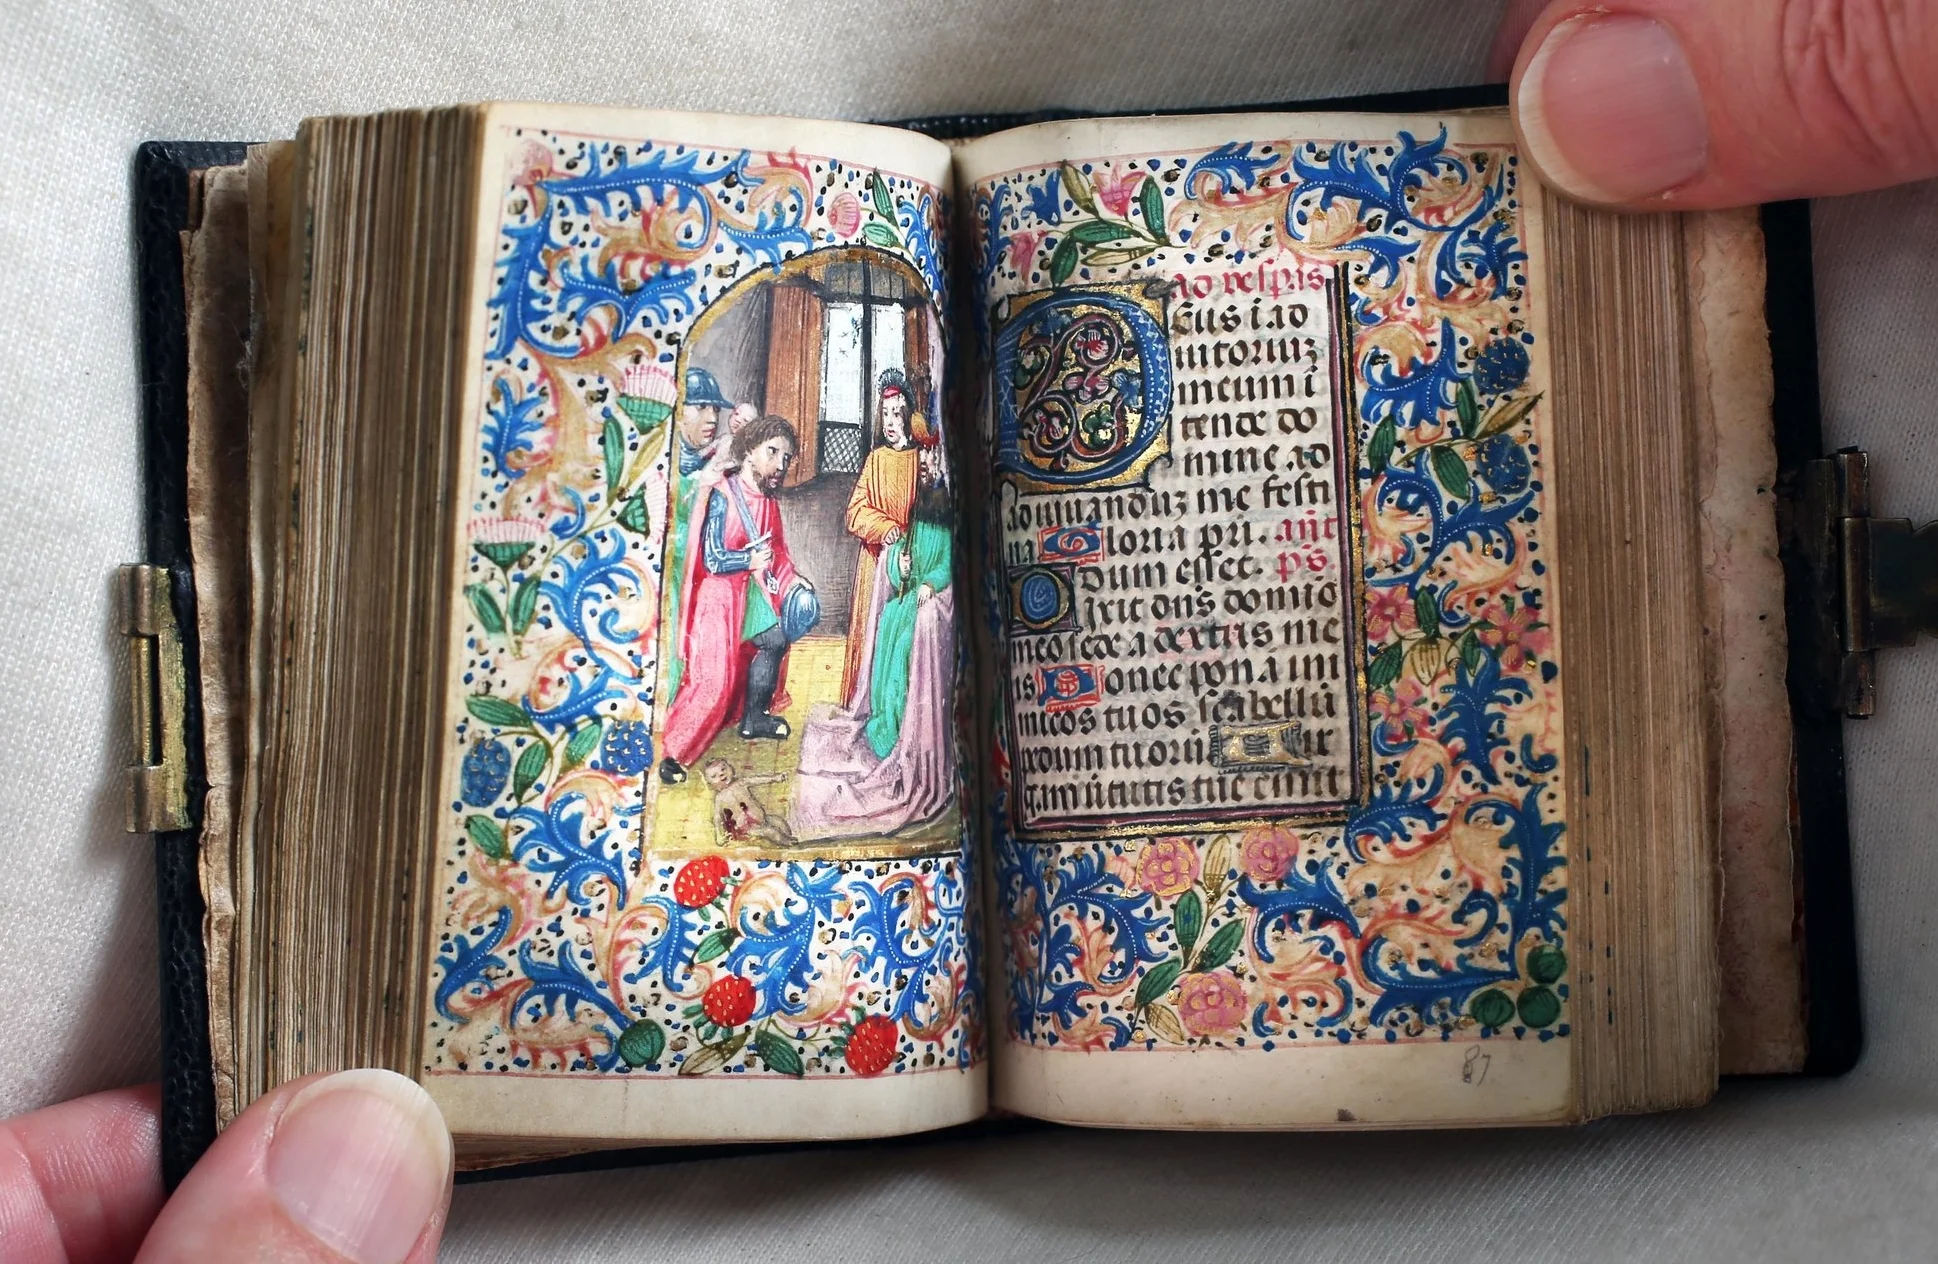 ad vesp̄as
Eus i ad
iutoriuz
meum ī
tende do
mine ad
adiuuanduz me festi
na Gloria pr̄i. ant̄
dum esset. ps̄
Dixit dn̄s domīo
meo sede a dextris me
is Donec ponā ini
micos tuos scabellū
pedum tuorū Uir
gam ūtutis tue emit
87